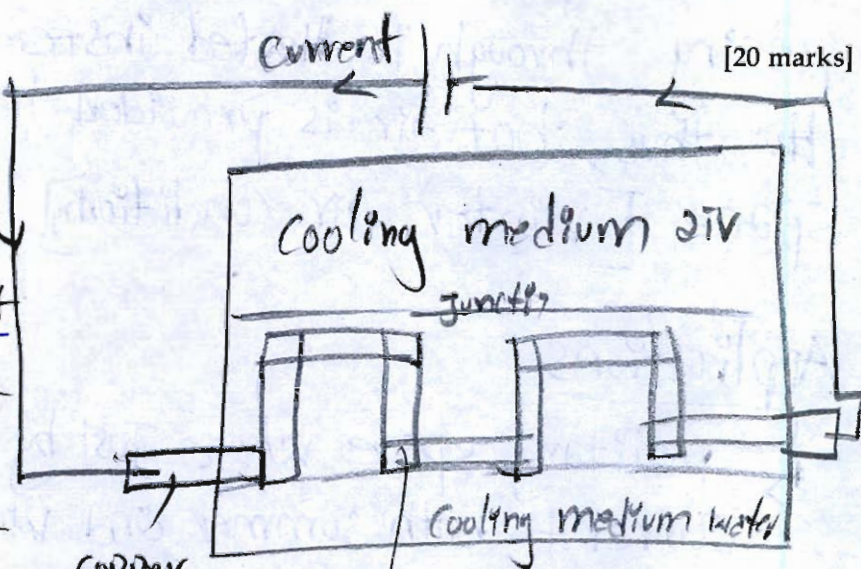 Current
[20 marks]
Cooling medium air
Junctin
Cooling medium water
Copper